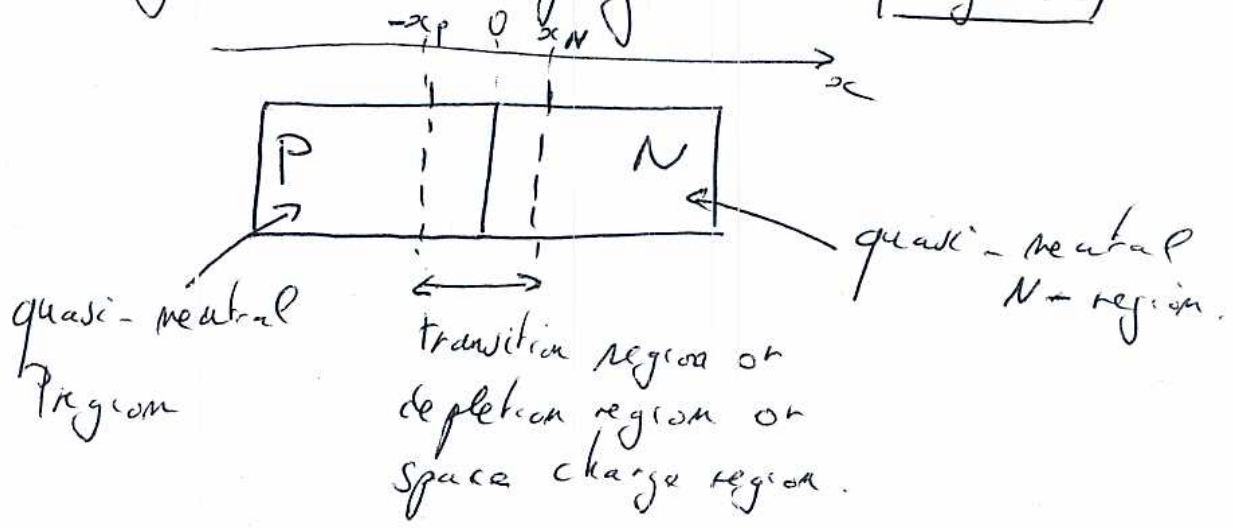 -xₚ 0 x_N
x
P N
quasi-neutral
N-region.
quasi-neutral
P region
transition region or
depletion region or
space charge region.